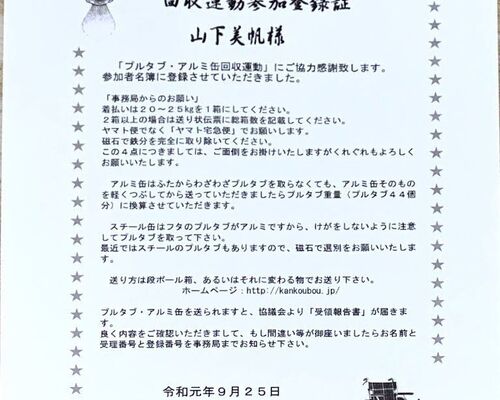 回収運動参加登録証
山下美帆様
「プルタブ・アルミ缶回収運動」にご協力感謝致します。
参加者名簿に登録させていただきました。
「事務局からのお願い」
着払いは２０～２５㎏を１箱にしてください。
２箱以上の場合は送り状伝票に総箱数を記載してください。
ヤマト便でなく「ヤマト宅急便」でお願いします。
磁石で鉄分を完全に取り除いてください。
この４点につきましては、ご面倒をお掛けいたしますがくれぐれもよろしく
お願いいたします。
アルミ缶はふたからわざわざプルタブを取らなくても、アルミ缶そのもの
を軽くつぶしてから送っていただきましたらプルタブ重量（プルタブ４４個
分）に換算させていただきます。
スチール缶はフタのプルタブがアルミですから、けがをしないように注意
してプルタブを取って下さい。
最近ではスチールのプルタブもありますので、磁石で選別をお願いいたしま
す。
送り方は段ボール箱、あるいはそれに変わる物でお送り下さい。
ホームページ：http://kankoubou.jp/
プルタブ・アルミ缶を送られますと、協議会より「受領報告書」が届きま
す。
良く内容をご確認いただきまして、もし間違い等が御座いましたらお名前と
受理番号と登録番号を事務局までお知らせ下さい。
令和元年９月２５日